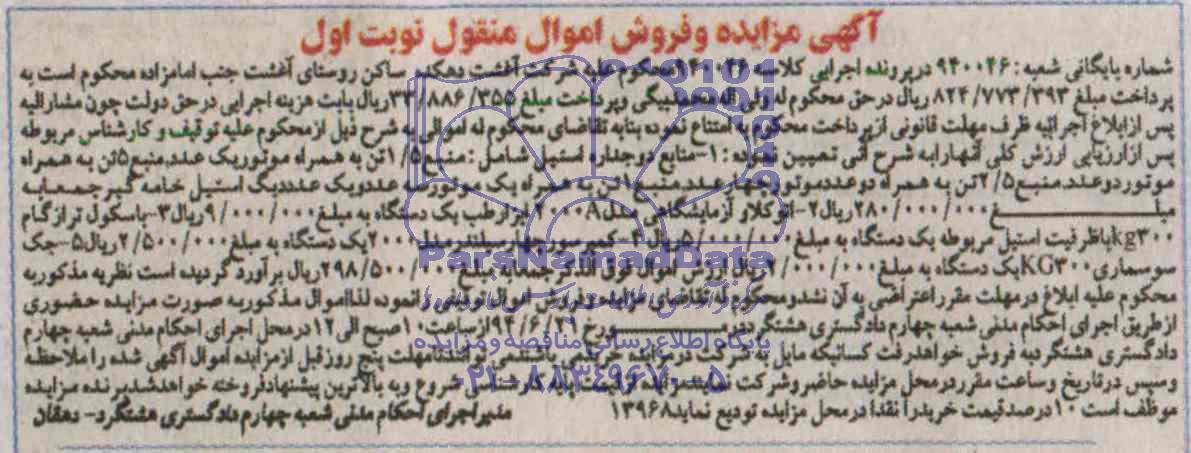 آگهی مزایده وفروش اموال منقول نوبت اول
شماره بایگانی شعبه: ۹۴۰۰۲۶ درپرونده اجرایی کلاسه ۹۴۱۰۲۶ محکوم علیه شرکت آغشت دهکده ساکن روستای آغشت جنب امامزاده محکوم است به
پرداخت مبلغ ۸۲۴/۷۷۳/۳۹۳ ریال درحق محکوم له ولی اله محمدبیگی وپرداخت مبلغ ۳۳/۸۸۶/۳۵۵ ریال بابت هزینه اجرایی درحق دولت چون مشارالیه
پس ازابلاغ اجرائیه ظرف مهلت قانونی ازپرداخت محکوم به امتناع نموده بنابه تقاضای محکوم له اموالی به شرح ذیل ازمحکوم علیه توقیف و کارشناس مربوطه
پس ازارزیابی ارزش کلی آنهارابه شرح آتی تعیین نموده: ۱-منابع دوجداره استیل شامل: منبع ۱/۵تن به همراه موتوریک عدد,منبع۵تن به همراه
موتوردوعدد,منبع۲/۵تن به همراه دوعددموتورچهارعدد,منبع۱تن به همراه یک عددویک عدددیک استیل خامه گیرجمعابه
مبلغ ۲۸۰/۰۰۰/۰۰۰ریال۲-اتوکلاو آزمایشگاهی مدل ۲۰۰۰A یک دستگاه به مبلغ۹/۰۰۰/۰۰۰ریال۳-باسکول ترازگام
۳۰۰kgباظرفیت استیل مربوطه یک دستگاه به مبلغ ۵/۰۰۰/۰۰۰ریال ۴-کمپرسورچهارسیلندرمدل ۲۰۰۰یک دستگاه به مبلغ۲/۵۰۰/۰۰۰ریال۵-جک
سوسماری۳۰۰KGیک دستگاه به مبلغ ۲/۰۰۰/۰۰۰ریال ارزش اموال فوق الذکرجمعابه مبلغ ۲۹۸/۵۰۰/۰۰۰ریال برآورد گردیده است نظریه مذکوربه
محکوم علیه ابلاغ درمهلت مقرراعتراضی به آن نشدومحکوم له تقاضای مزایده وفروش اموال توقیفی رانموده لذااموال مذکوربه صورت مزایده حضوری
ازطریق اجرای احکام مدنی شعبه چهارم دادگستری هشتگرددرمورخ ۹۴/۶/۲۹ازساعت۱۰صبح الی۱۲درمحل اجرای احکام مدنی شعبه چهارم
دادگستری هشتگردبه فروش خواهدرفت کسانیکه مایل به شرکت درمزایده خرید می باشندمی توانندتامهلت پنج روزقبل ازمزایده اموال آگهی شده را ملاحظه
وسپس درتاریخ وساعت مقرردرمحل مزایده حاضروشرکت نمایند.مزایده ازقیمت پایه کارشناسی شروع وبه بالاترین پیشنهادفروخته خواهدشدبرنده مزایده
موظف است ۱۰درصدقیمت خریدرا نقدا درمحل مزایده تودیع نماید۱۳۹۶۸
مدیراجرای احکام مدنی شعبه چهارم دادگستری هشتگرد- دهقان
ParsNamadData
پایگاه اطلاع رسانی مناقصه و مزایده
۰۲۱-۸۸۳۴۹۶۷۰-۵